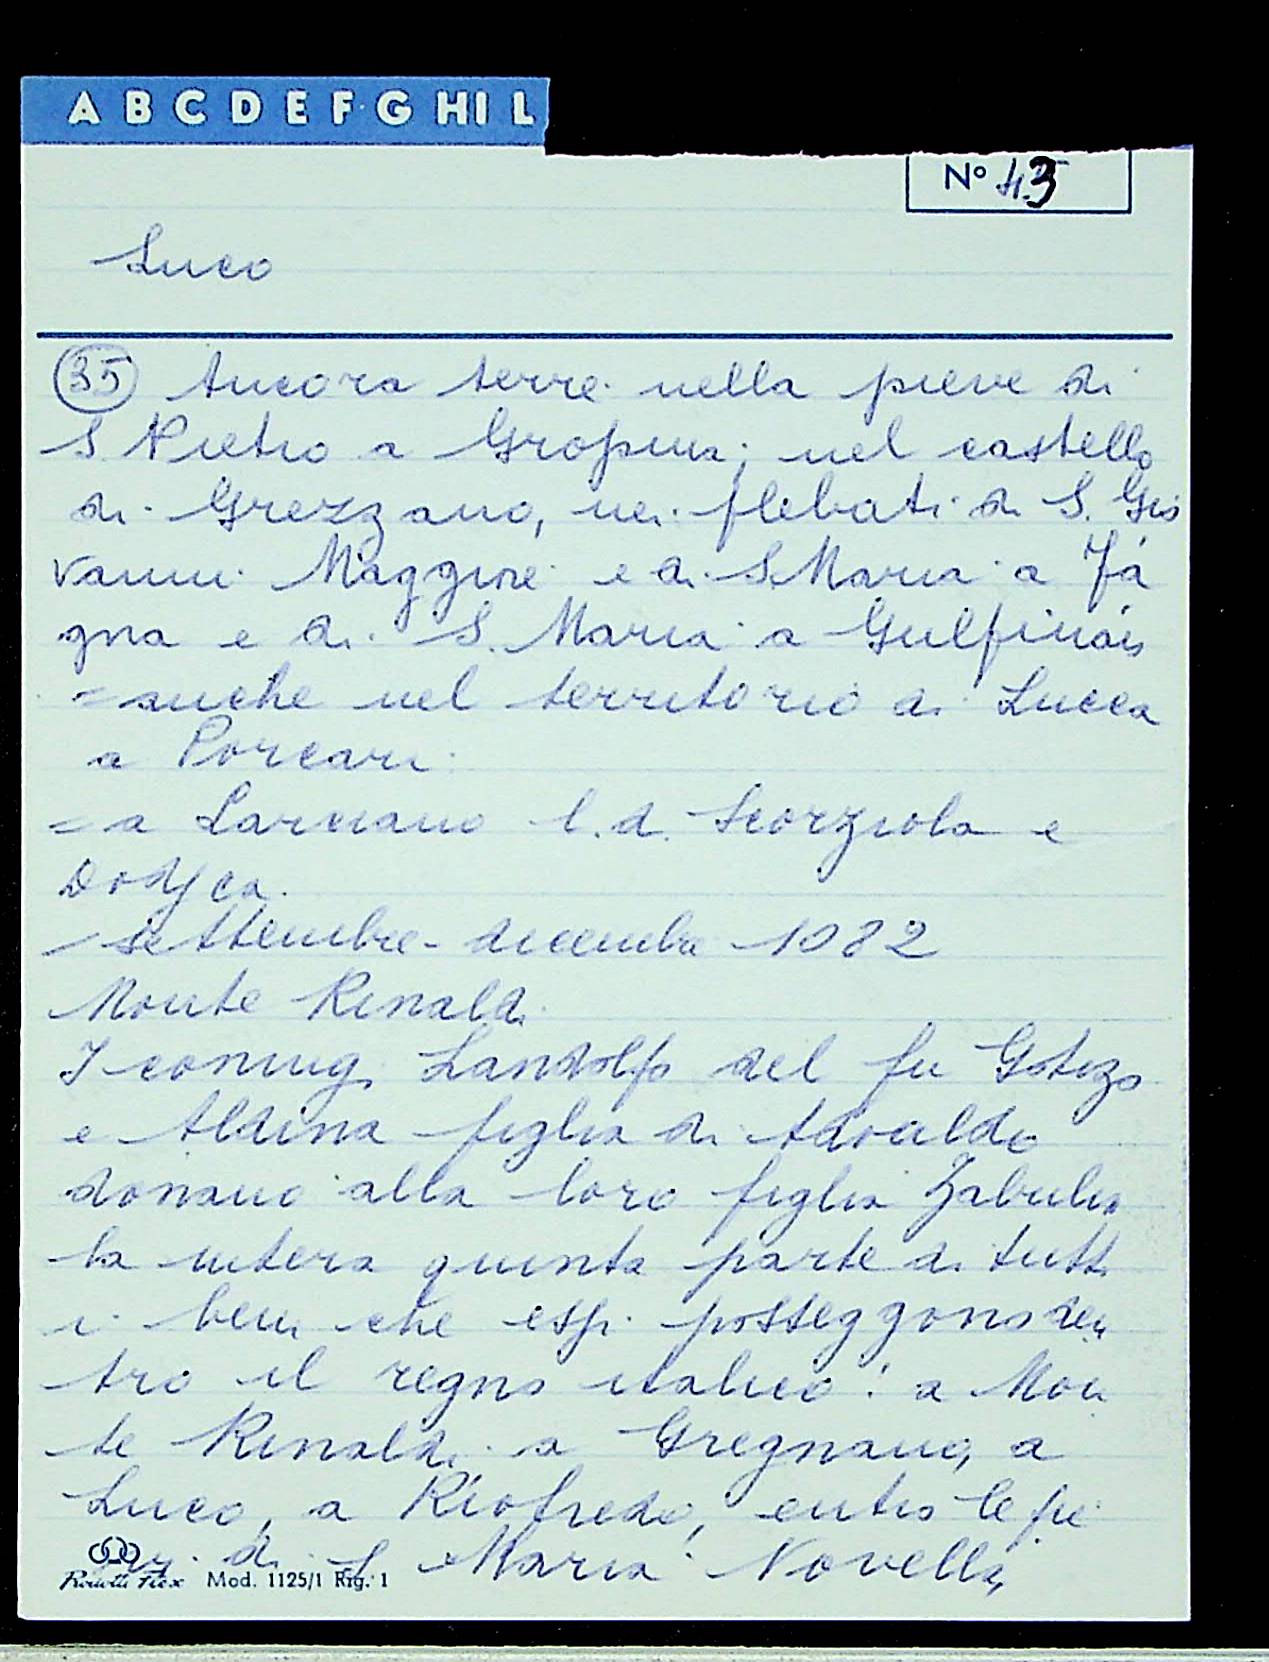 A B C D E F G H I L
N° 43
Luco
35 Ancora terre nella pieve di
S Pietro a Gropina; nel castello
di Grezzano, nei plebati di S. Gio
vanni Maggiore e di S Maria a Fa
gna e di S. Maria a
= anche nel territorio di Lucca
a Porcari
= a Larciano l.d. Scorziola e

settembre - dicembre 1082
Monte Rinaldi
I coniugi Landolfo del fu Gotizo
e Aldina figlia di
donano alla loro figlia Zabulina
la intera quinta parte di tutti
i beni che essi posseggono den
tro il regno italico: a Mon
te Rinaldi a Gregnano, a
Luco, a Riofredo, entro le pie
vi di S Maria Novella,
Mod. 1125/1 Rig. 1